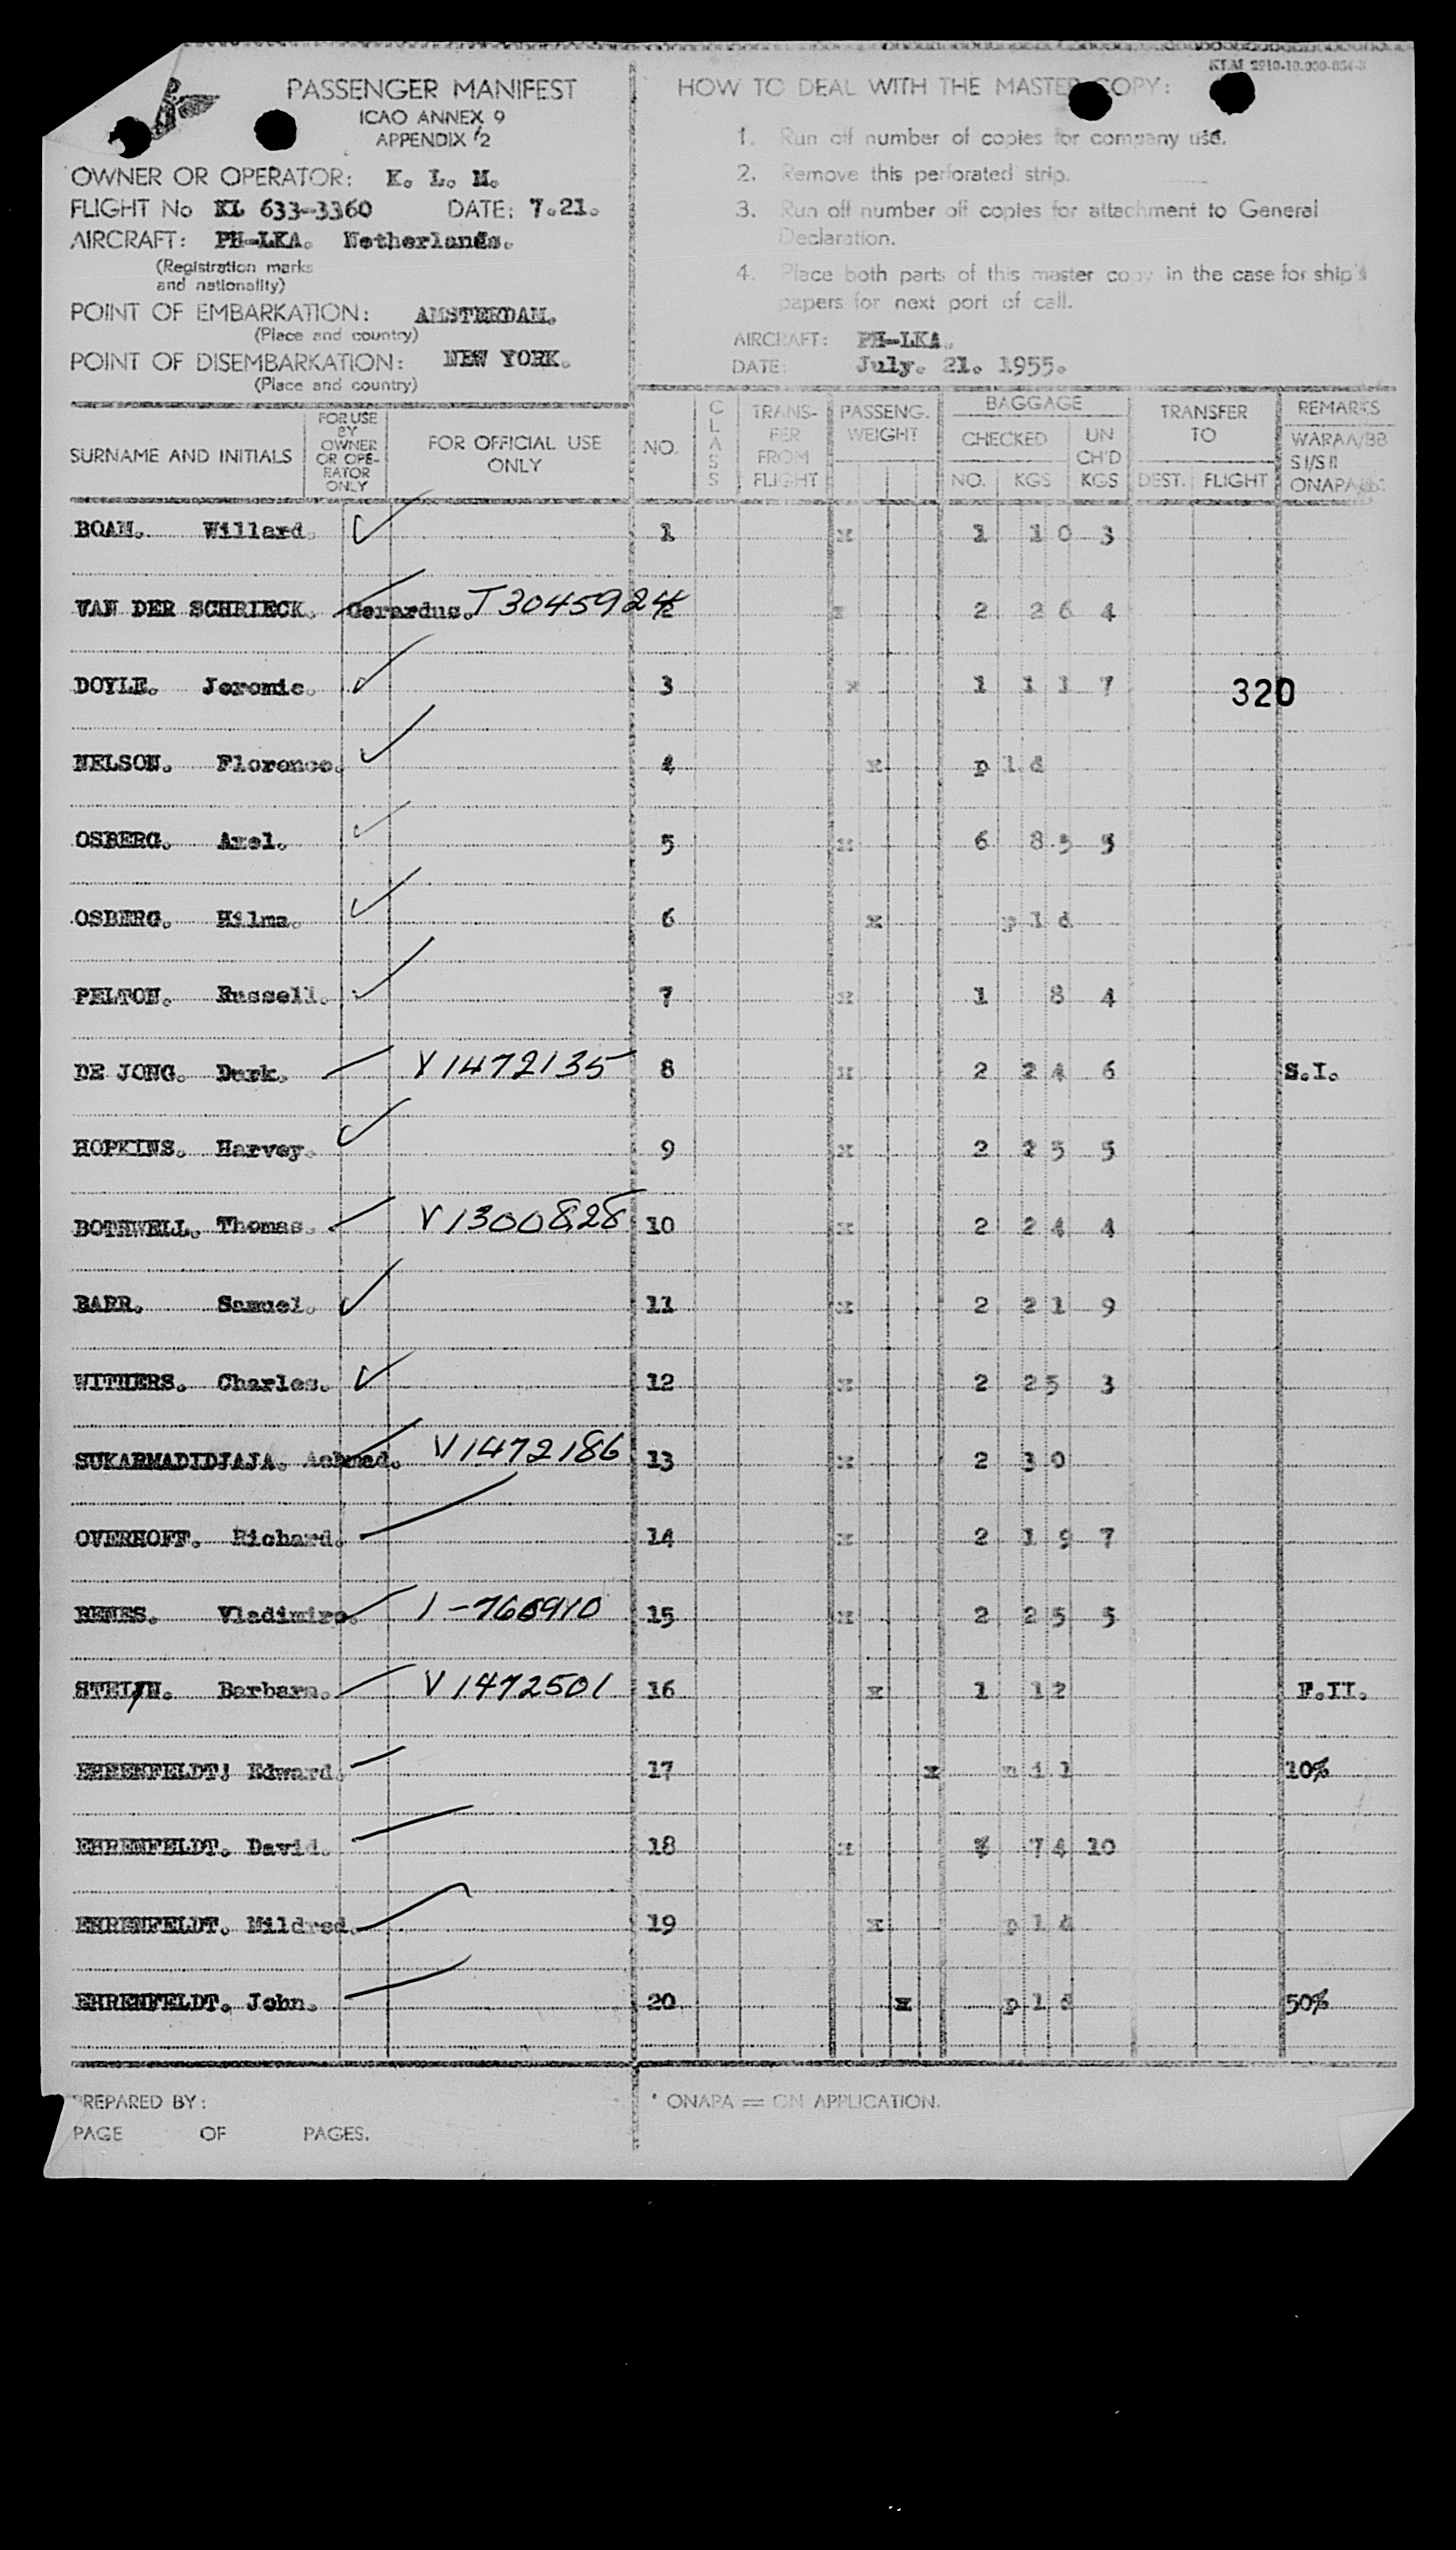 KLM 2910-10.000-854-8
PASSENGER MANIFEST
ICAO ANNEX 9
APPENDIX 2
OWNER OR OPERATOR: K. L. M.
FLIGHT No KL 633-3360 DATE: 7.21.
AIRCRAFT: PH-LKA. Netherlands.
(Registration marks
and nationality)
POINT OF EMBARKATION: AMSTERDAM.
(Place and country)
POINT OF DISEMBARKATION: NEW YORK.
(Place and country)
HOW TO DEAL WITH THE MASTER COPY:
1. Run off number of copies for company use.
2. Remove this perforated strip.
3. Run off number off copies for attachment to General
Declaration.
4. Place both parts of this master copy in the case for ship's
papers for next port of call.
AIRCRAFT: PH-LKA.
DATE: July. 21. 1955.
SURNAME AND INITIALS FOR USE BY OWNER OR OPE-RATOR ONLY FOR OFFICIAL USE ONLY NO. CLASS TRANS-FER FROM FLIGHT PASSENG. WEIGHT BAGGAGE CHECKED NO. KGS UN CH'D KGS TRANSFER TO DEST. FLIGHT REMARKS WARAA/BB S I/S II ONAPA
BOAM. Willard. 1 x 1 10 3
VAN DER SCHRIECK. Gerardus. T3045924 2 x 2 26 4
DOYLE. Jeromic. 3 x 1 11 7 320
NELSON. Florence. 4 x pld
OSBERG. Axel. 5 x 6 85 5
OSBERG. Hilma. 6 x pld
PELTON. Russell. 7 x 1 8 4
DE JONG. Durk. V1472135 8 x 2 24 6 S.I.
HOPKINS. Harvey. 9 x 2 25 5
BOTHWELL. Thomas. V1300828 10 x 2 24 4
BARR. Samuel. 11 x 2 21 9
WITHERS. Charles. 12 x 2 25 3
SUKARMADIDJAJA. Achmad. V1472186 13 x 2 30
OVERHOFF. Richard. 14 x 2 19 7
BENES. Vladimiro. 1-760910 15 x 2 25 5
STEIN. Barbara. V1472501 16 x 1 12 F.II.
EHRENFELDT. Edward. 17 x nil 10%
EHRENFELDT. David. 18 x 74 10
EHRENFELDT. Mildred. 19 x pld
EHRENFELDT. John. 20 x pld 50%
PREPARED BY:
PAGE OF PAGES.
* ONAPA = ON APPLICATION.